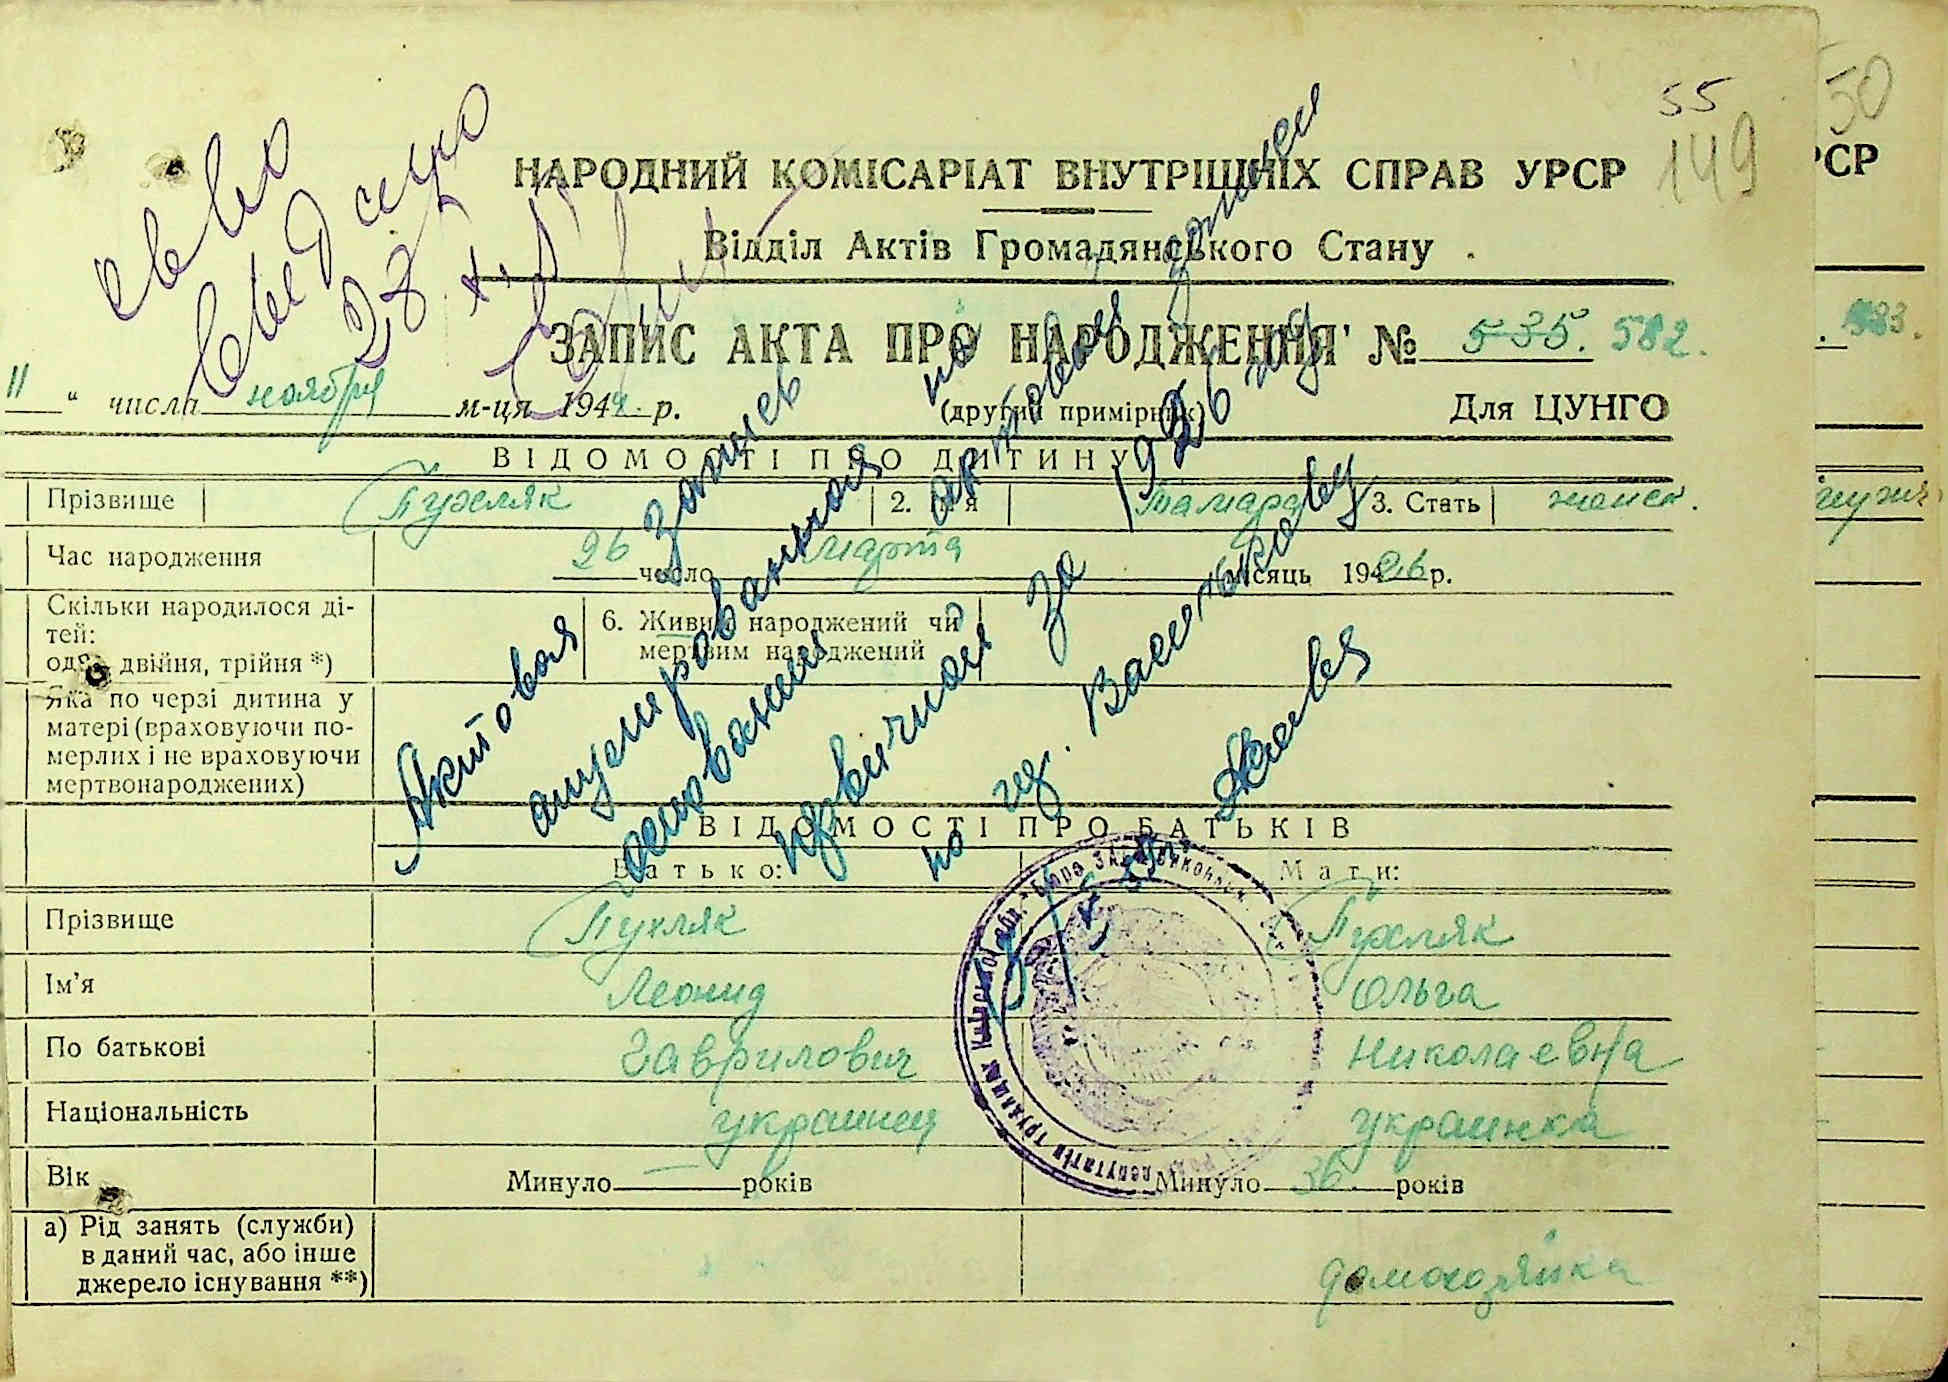 55
149
50
НАРОДНИЙ КОМІСАРІАТ ВНУТРІШНІХ СПРАВ УРСР
РСР
Відділ Актів Громадянського Стану
28
ЗАПИС АКТА ПРО НАРОДЖЕННЯ № 535. 582.
„11“ числа ноября м-ця 1944 р. (другий примірник) Для ЦУНГО
ВІДОМОСТІ ПРО ДИТИНУ
Прізвище Пухляк 2. Ім'я Тамара 3. Стать женск.
Час народження 26 число марта місяць 1926 р.
Скільки народилося ді-
тей:
одна, двійня, трійня *)
6. Живим народжений чи
мертвим народжений
Яка по черзі дитина у
матері (враховуючи по-
мерлих і не враховуючи
мертвонароджених)
Актовая запись
анулирована на
основании актовой записи
первичной за 1926 год
по гор. Василькову
ВІДОМОСТІ ПРО БАТЬКІВ
Батько: Мати:
Прізвище Пухляк Пухляк
Ім'я Леонид Ольга
По батькові Гаврилович Николаевна
Національність украинец украинка
Вік Минуло — років Минуло 36 років
а) Рід занять (служби)
в даний час, або інше
джерело існування **)
домохозяйка